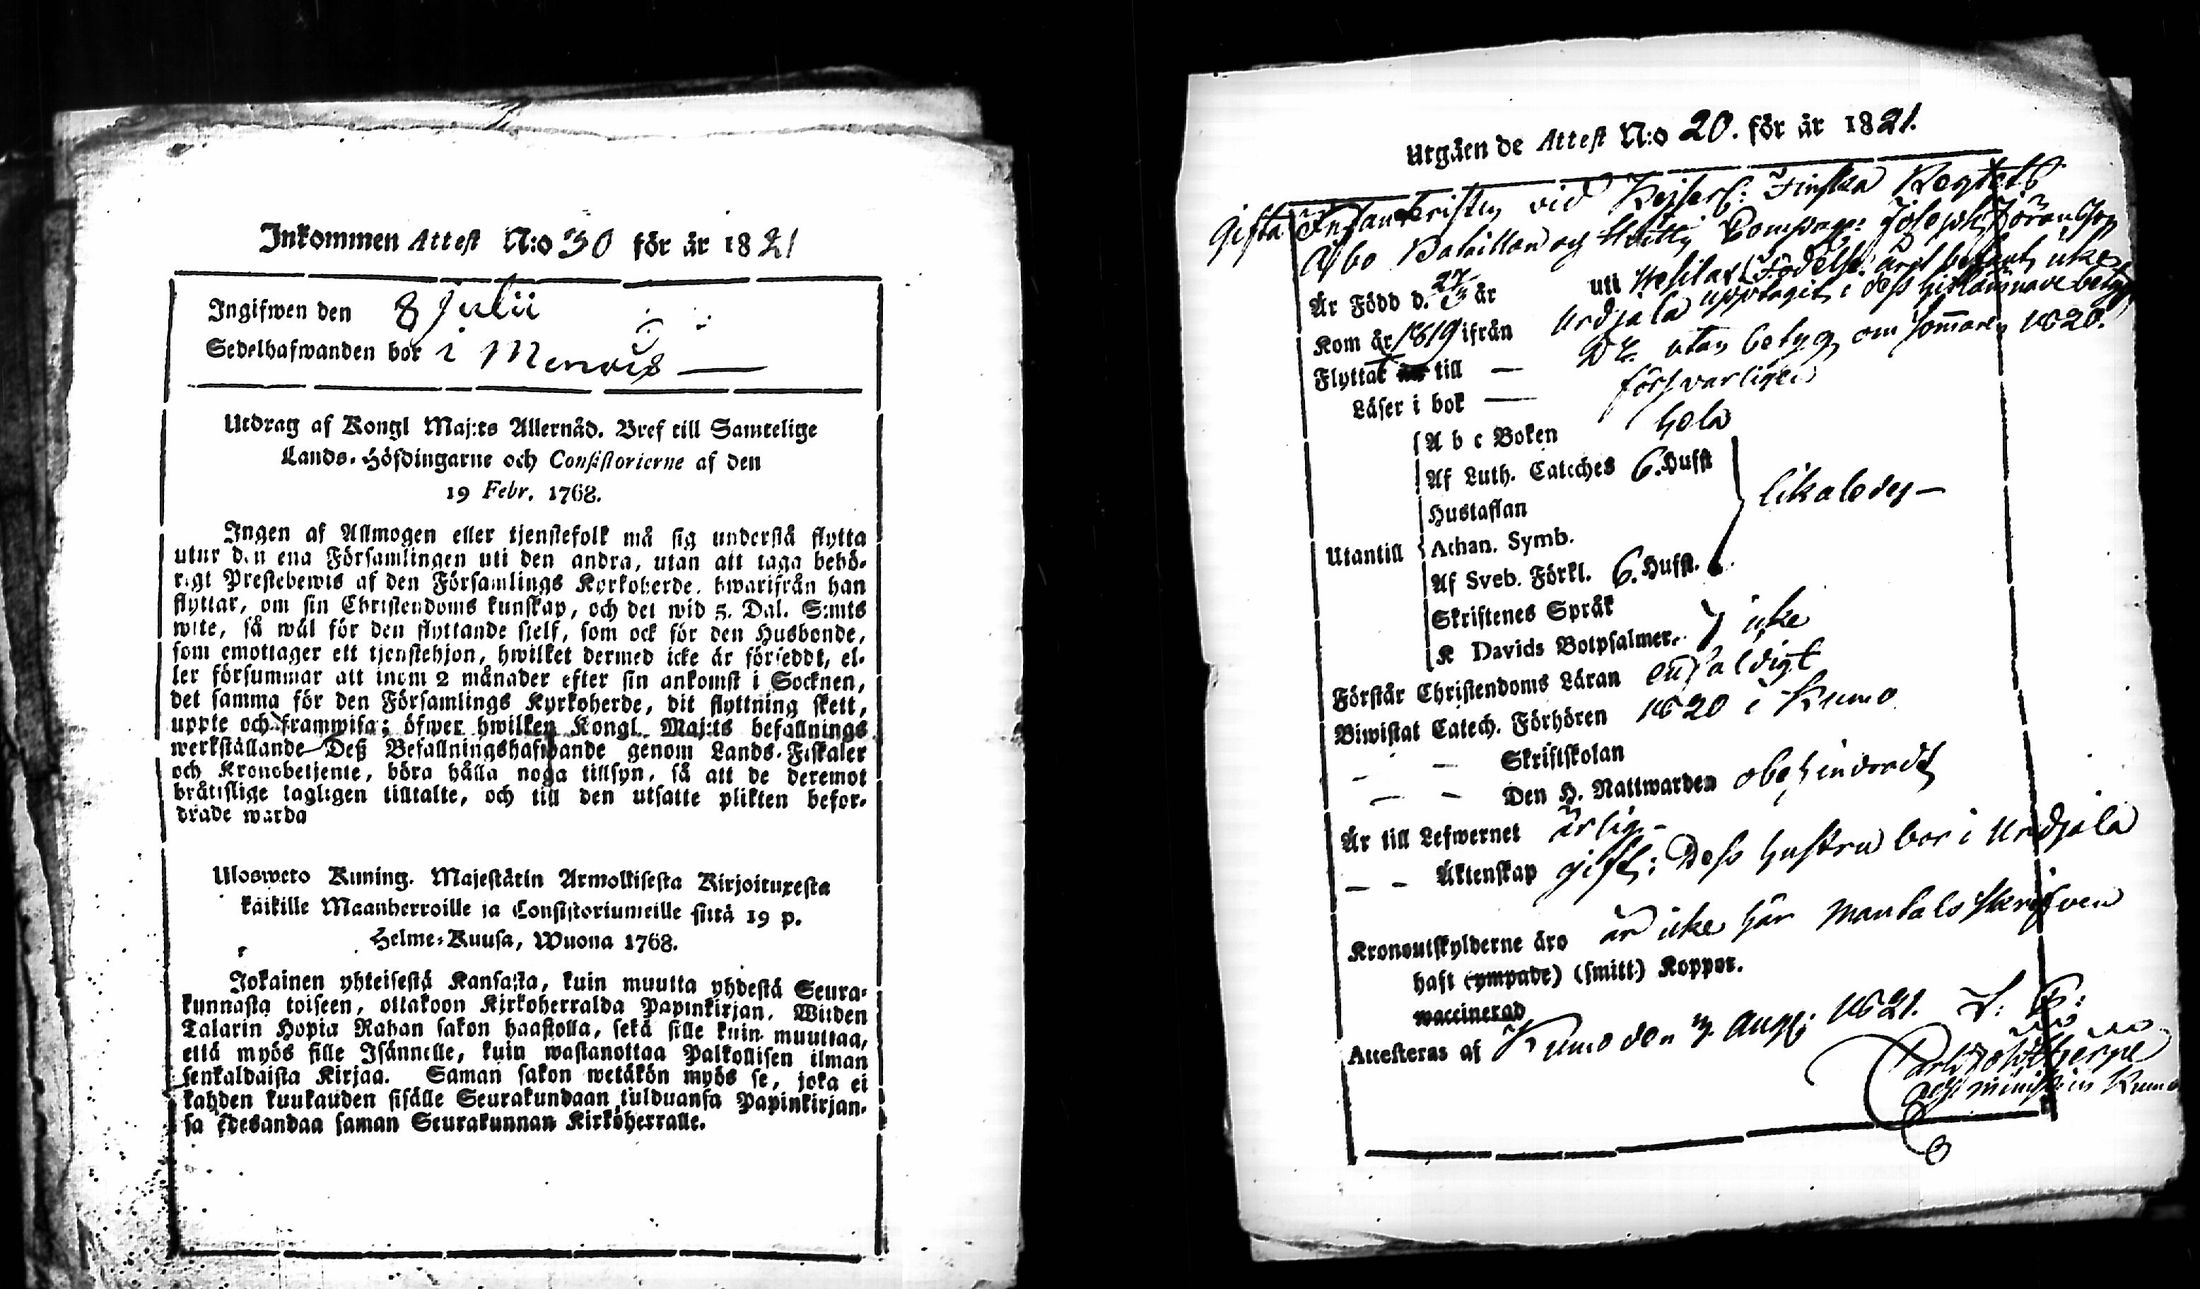 Inkommen Attest N:o 30 för år 1821
Ingifwen den 8 Julii
Sedelhafwanden bor i
Utdrag af Kongl Maj:ts Allernåd. Bref till Samtelige
Lands-Höfdingarne och Consistorierne af den
19 Febr. 1768.
Ingen af Allmogen eller tjenstefolk må sig understå flytta
utur den ena Församlingen uti den andra, utan att taga behö-
rigt Prestebewis af den Församlings Kyrkoherde, hwarifrån han
flyttar, om sin Christendoms kunskap, och det wid 5. Dal. S:mts
wite, så wäl för den flyttande sjelf, som ock för den Husbonde,
som emottager ett tjenstehjon, hwilket dermed icke är försedt, el-
ler försummar att inom 2 månader efter sin ankomst i Socknen,
det samma för den Församlings Kyrkoherde, dit flyttning skett,
uppte och framwisa; öfwer hwilken Kongl. Maj:ts befallnings
werkställande Deß Befallningshafwande genom Lands-Fiskaler
och Kronobetjente, böra hålla noga tillsyn, så att de deremot
bråttslige lagligen tilltalte, och till den utsatte plikten befor-
drade warda
Ulosweto Kuning. Majestätin Armollisesta Kirjoituxesta
kaikille Maanherroille ja Consistoriumeille siitä 19 p.
Helme-Kuusa, Wuona 1768.
Jokainen yhteisestä Kansasta, kuin muutta yhdestä Seura-
kunnasta toiseen, ottakoon Kirkoherralda Papinkirjan, Wiiden
Talarin Hopia Rahan sakon haastolla, sekä sille kuin muuttaa,
että myös sille Isännelle, kuin wastanottaa Palkollisen ilman
senkaldaista Kirjaa. Saman sakon wetäkön myös se, joka ei
kahden kuukauden sisälle Seurakundaan tulduansa Papinkirjan-
sa edesandaa saman Seurakunnan Kirkoherralle.
Utgåen de Attest N:o 20. för år 1821.
Gifta Infanteristen vid Kejserl: Finska Regtets
Åbo Bataillon och Compag: Joseph Göransson
Är Född d. 27/3 år uti Wesilax (Födelse året bekant icke
Kom år 1819 ifrån Urdjala upptagit i dess betyg
Flyttat till — utan betyg om sommaren 1820.
Läser i bok — försvarligen
A b c Boken hela
Af Luth. Cateches 6. Hufst
Hustaflan likaledes —
Utantill Athan. Symb.
Af Sveb. Förkl. 6. Hufst.
Skriftenes Språk
K Davids Botpsalmer. icke
Förstår Christendoms Läran enfaldigt
Biwistat Catech. Förhören 1820 i Kumo
— — Skriftskolan
— — Den H. Nattwarden obehindradt
Är till Lefwernet ärlig —
— — Äktenskap gift: Dess hustru bor i Urdjala
Kronoutskylderne äro är icke här mantalsskrifven
haft (ympade) (smitt) Koppor.
waccinerad
Attesteras af Kumo den Aug: 1821.
Carl
adj: minist: in Kumo